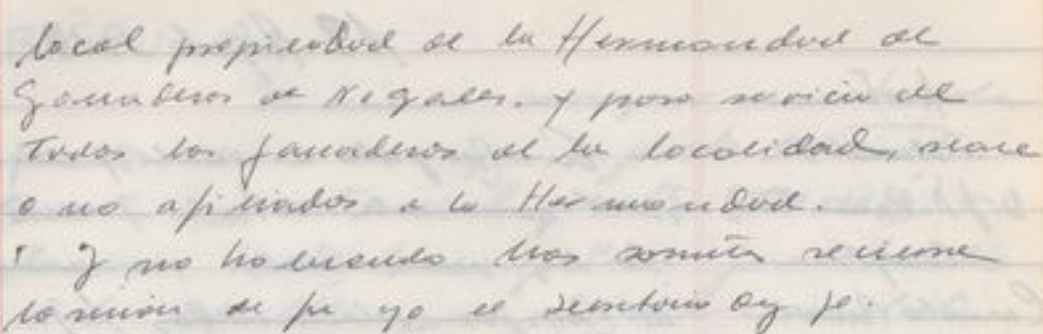 local propiedad de la Hermandad de
Ganaderos de Nogales. y para servicio de
Todos los ganaderos de la localidad, sean
o no afiliados a la Hermandad.
Y no habiendo mas
la sesion de que yo el secretario doy fe.